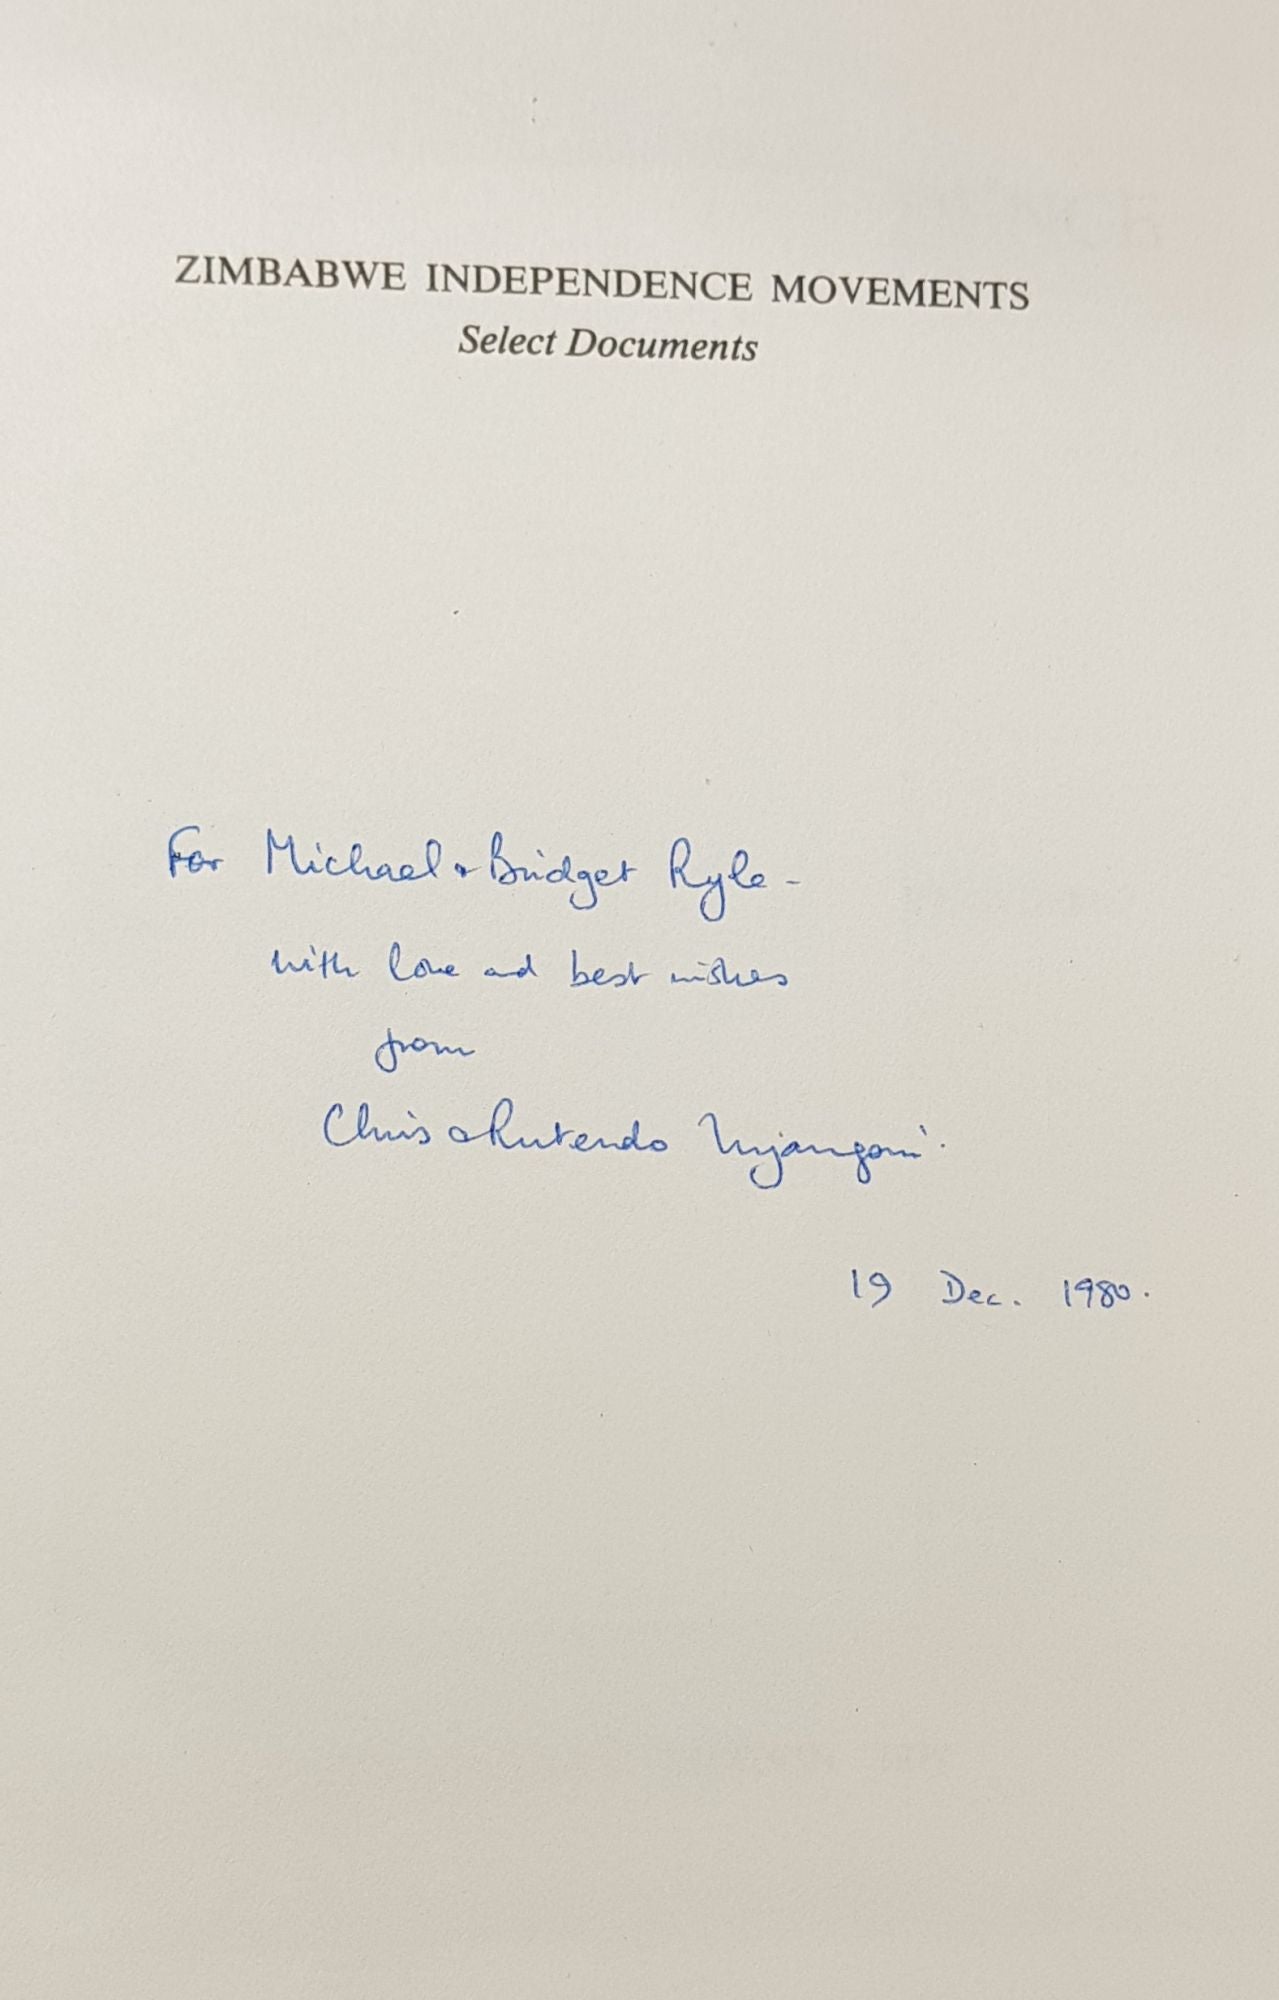 ZIMBABWE INDEPENDENCE MOVEMENTS
Select Documents
For Michael & Bridget Ryle -
with love and best wishes
from
Chris & Rutendo
19 Dec. 1980.